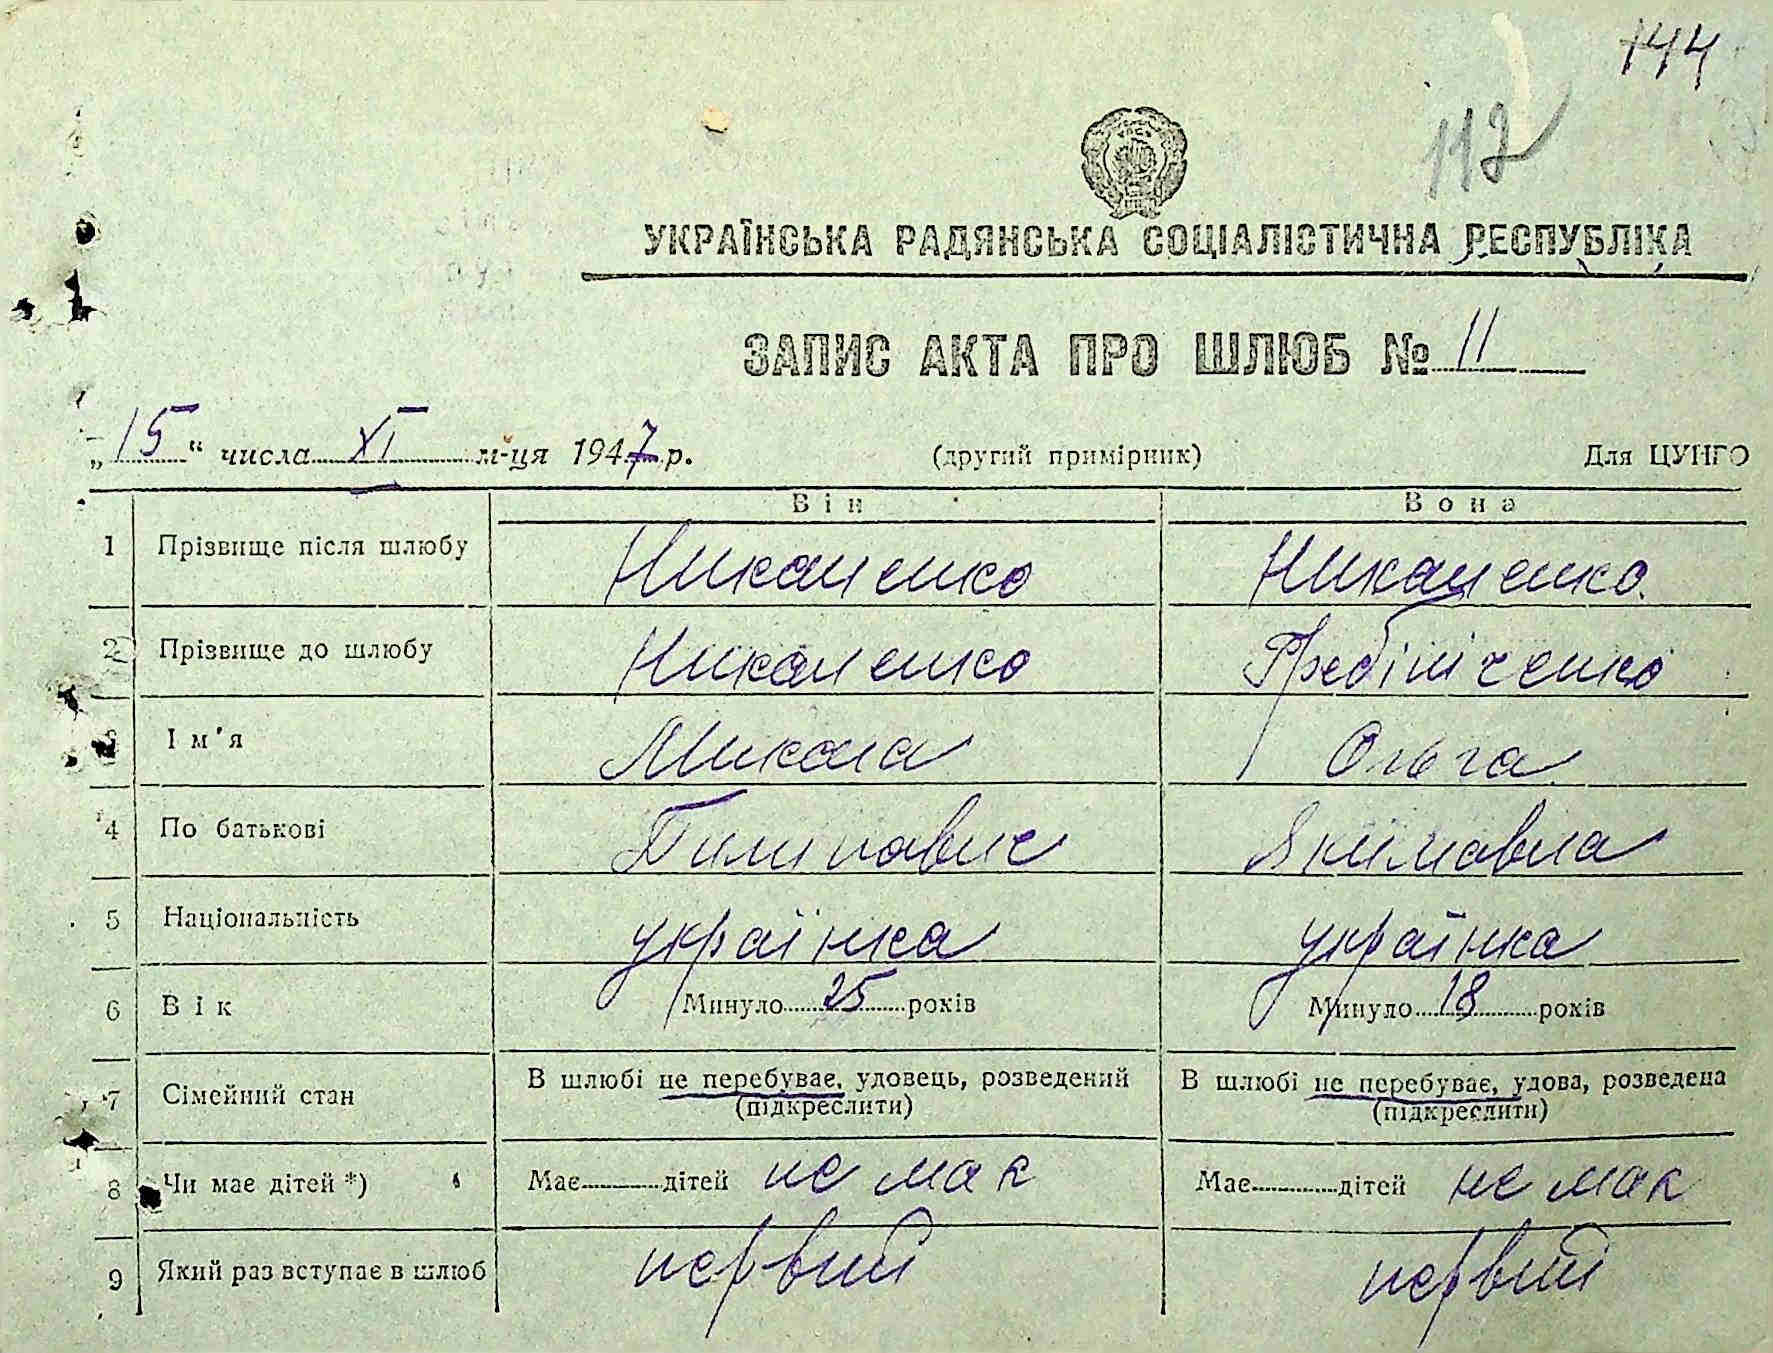 144
112
УКРАЇНСЬКА РАДЯНСЬКА СОЦІАЛІСТИЧНА РЕСПУБЛІКА
ЗАПИС АКТА ПРО ШЛЮБ № 11
„15“ числа XI м-ця 1947 р. (другий примірник) Для ЦУНГО
Він Вона
1 Прізвище після шлюбу Никаненко Никаненко
2 Прізвище до шлюбу Никаненко
3 Ім'я Микола Ольга
4 По батькові Пилипович Якимовна
5 Національність українка українка
6 Вік Минуло 25 років Минуло 18 років
7 Сімейний стан В шлюбі не перебуває, удовець, розведений В шлюбі не перебуває, удова, розведена
(підкреслити) (підкреслити)
8 Чи має дітей *) Має дітей не має Має дітей не має
9 Який раз вступає в шлюб первий первий